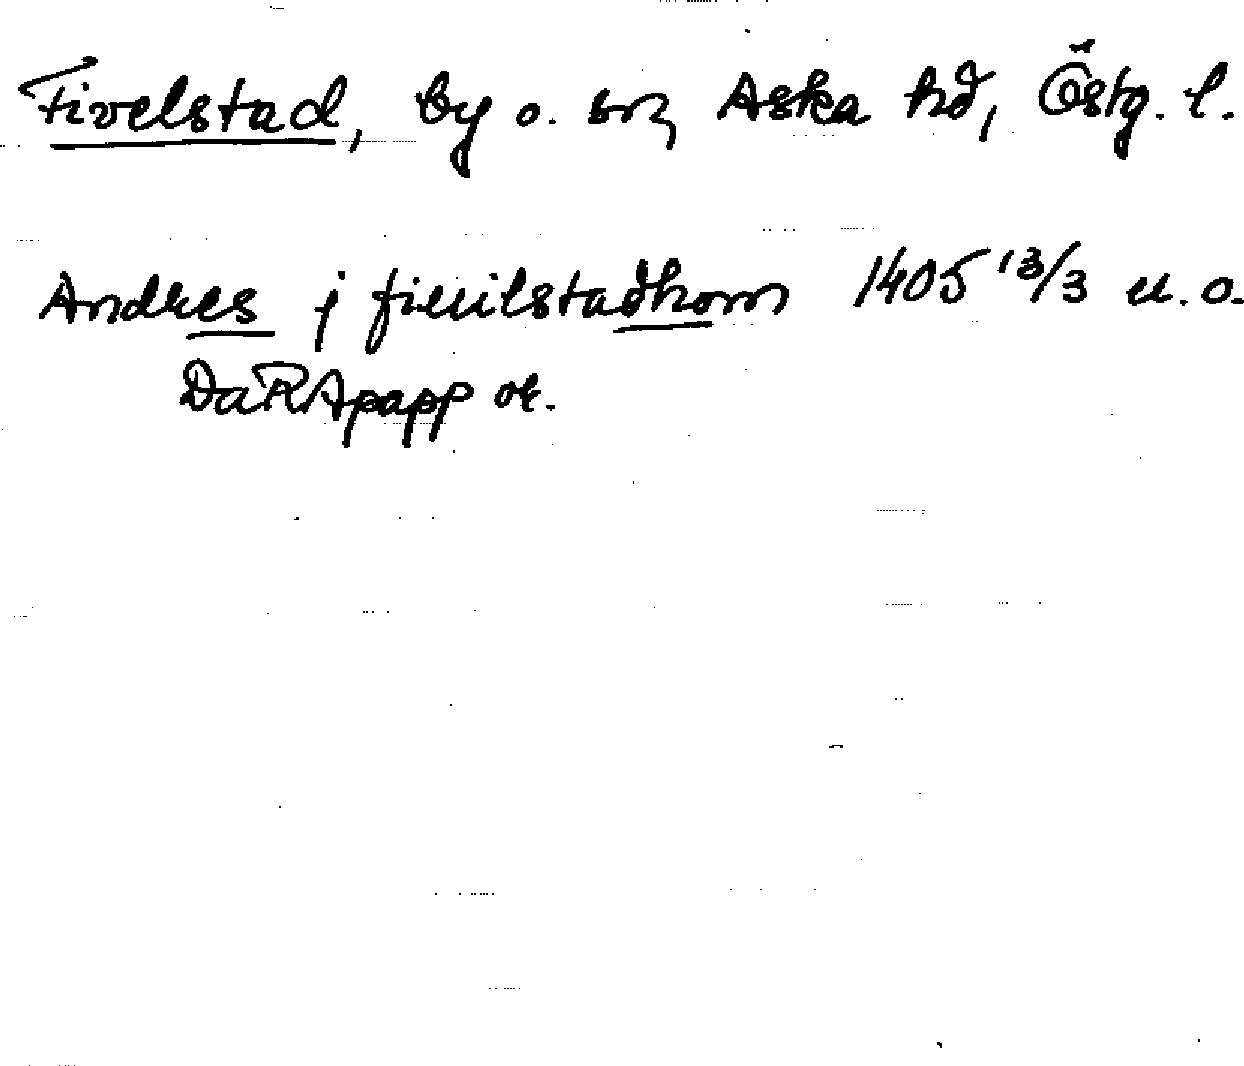 Fivelstad, by o. sn, Aska hd, Östg. l.
Andres j fiuilstadhom 1405 13/3 u.o.
DaRApapp or.